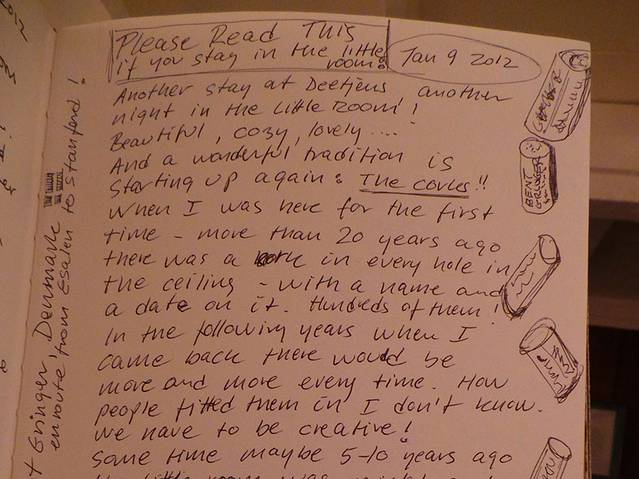 Please Read This
if you stay in the little
room!
Jan 9 2012
Another stay at Deetjens another
night in the little room!
Beautiful, cozy, lovely ....
And a wonderful tradition is
starting up again: The corks!!
When I was here for the first
time - more than 20 years ago
there was a cork in every hole in
the ceiling - with a name and
a date on it. Hundreds of them!
In the following years when I
came back there would be
more and more every time. How
people fitted them in I don't know.
We have to be creative!
Some time maybe 5-10 years ago
the little room was
BENT
GRINGER
Gringer, Denmark
enroute, from Esalen to Stanford!